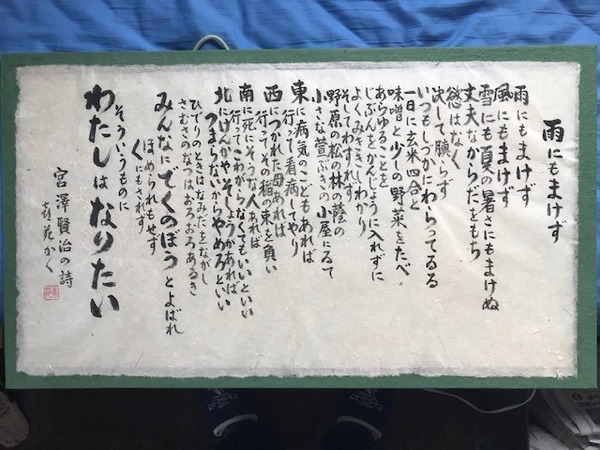 雨にもまけず
雨にもまけず
風にもまけず
雪にも夏の暑さにもまけぬ
丈夫なからだをもち
慾はなく
決して瞋らず
いつもしづかにわらってゐる
一日に玄米四合と
味噌と少しの野菜をたべ、
あらゆることを
じぶんをかんじょうに入れずに
よくみききしわかり
そしてわすれず
野原の松の林の蔭の
小さな萱ぶきの小屋にゐて
東に病気のこどもあれば
行って看病してやり
西につかれた母あれば
行ってその稲の束を負い
南に死にそうな人あれば
行ってこわがらなくてもいいといい
北にけんかやそしょうがあれば
つまらないからやめろといい
ひでりのときはなみだをながし
さむさのなつはおろおろあるき
みんなにでくのぼうとよばれ
ほめられもせず
くにもされず
そういうものに
わたしはなりたい
宮澤賢治の詩
かく